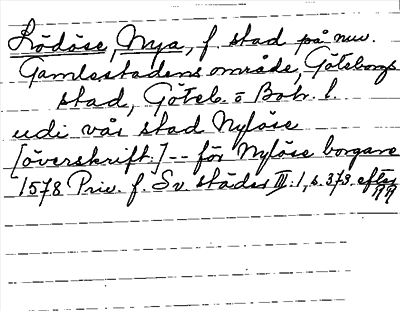 Lödöse, Nya, f. stad på nuv.
Gamlestadens område, Göteborgs
stad, Göteb. o Boh. l.
udi vår stad Nylöse
[överskrift:] -- för Nylöse borgare
1578 Priv. f. Sv. städer III:1, s. 373. efter